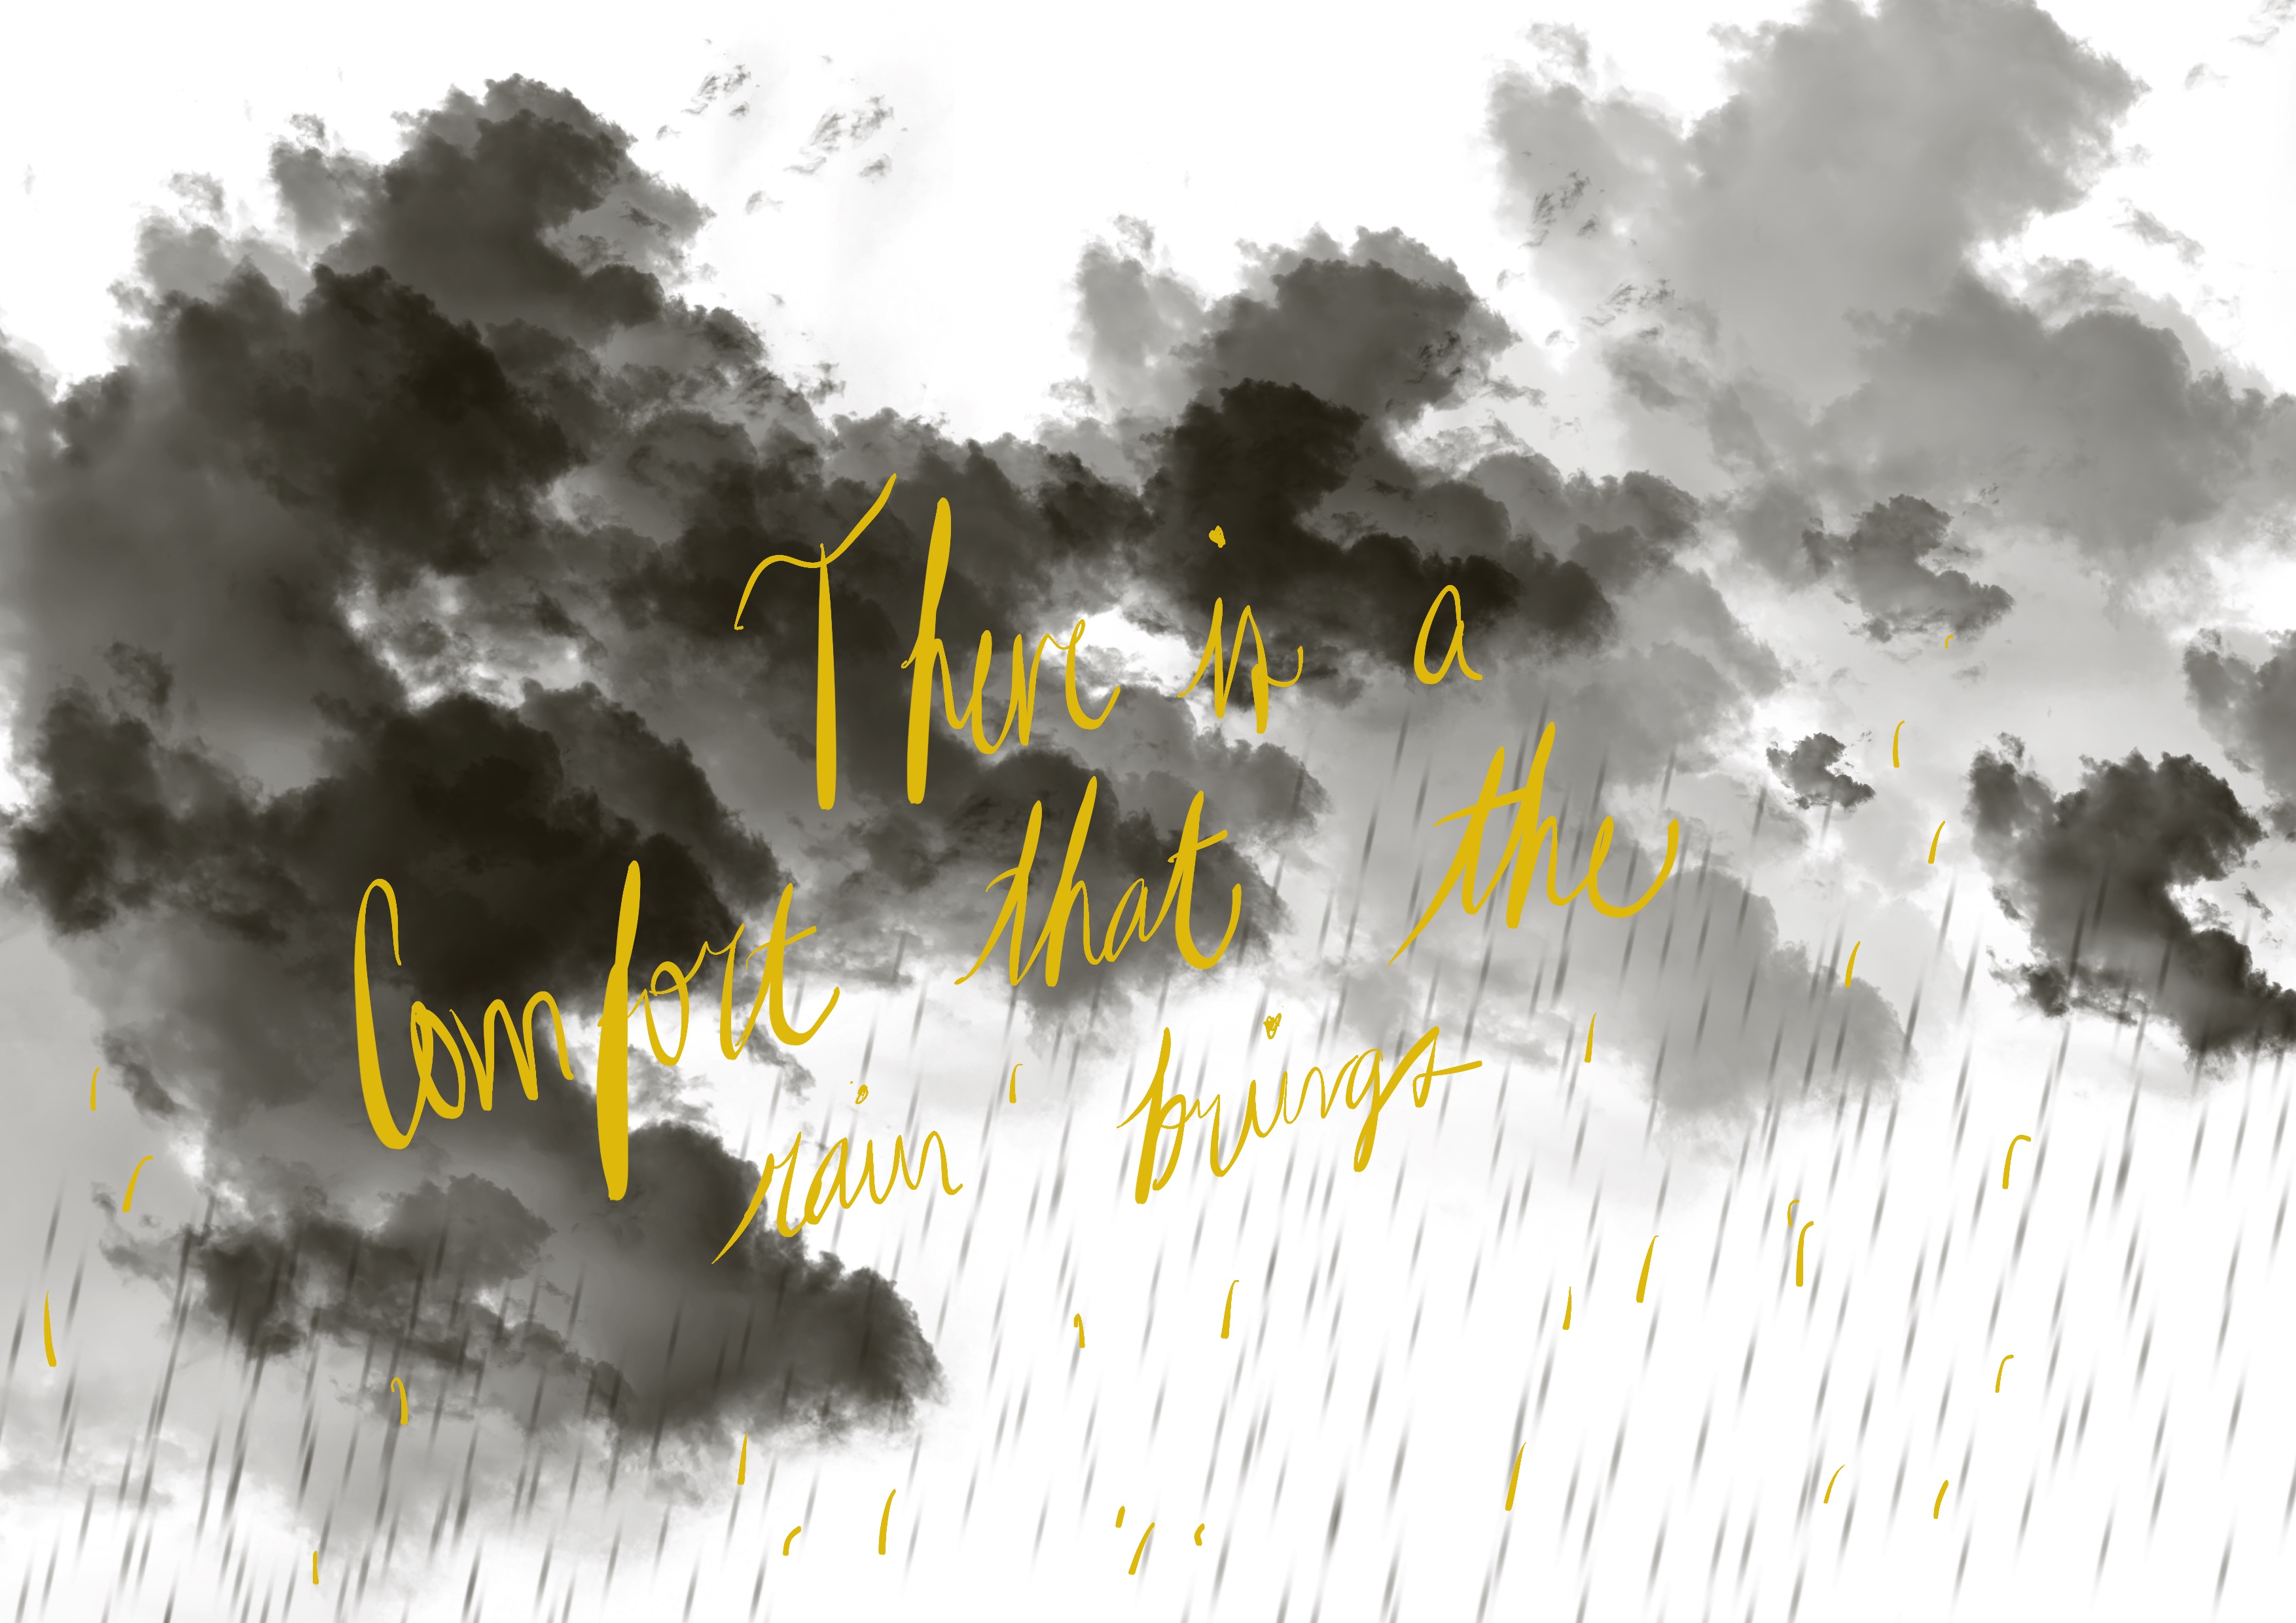 There is a
Comfort that the
rain brings